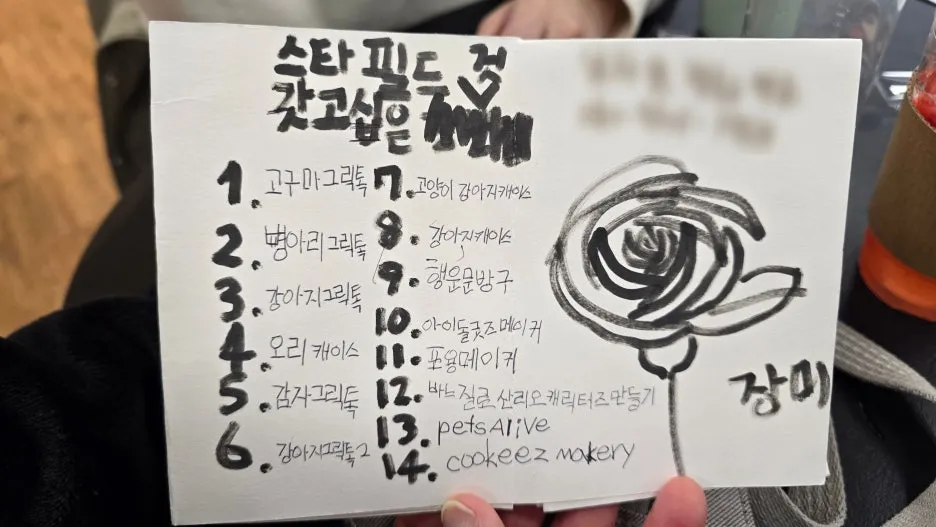 스타 필드 것
갖고십은
1. 고구마그릭톡
2. 병아리그릭톡
3. 강아지그릭톡
4. 오리 캐이스
5. 감자그릭톡
6. 강아지그릭톡2
7. 고양이 강아지캐이스
8. 강아지캐이스
9. 행운문방구
10. 아이돌굿즈메이커
11. 포용메이커
12. 바느질로 산리오캐릭터즈만들기
13. petsAlive
14. cookeez makery
장미